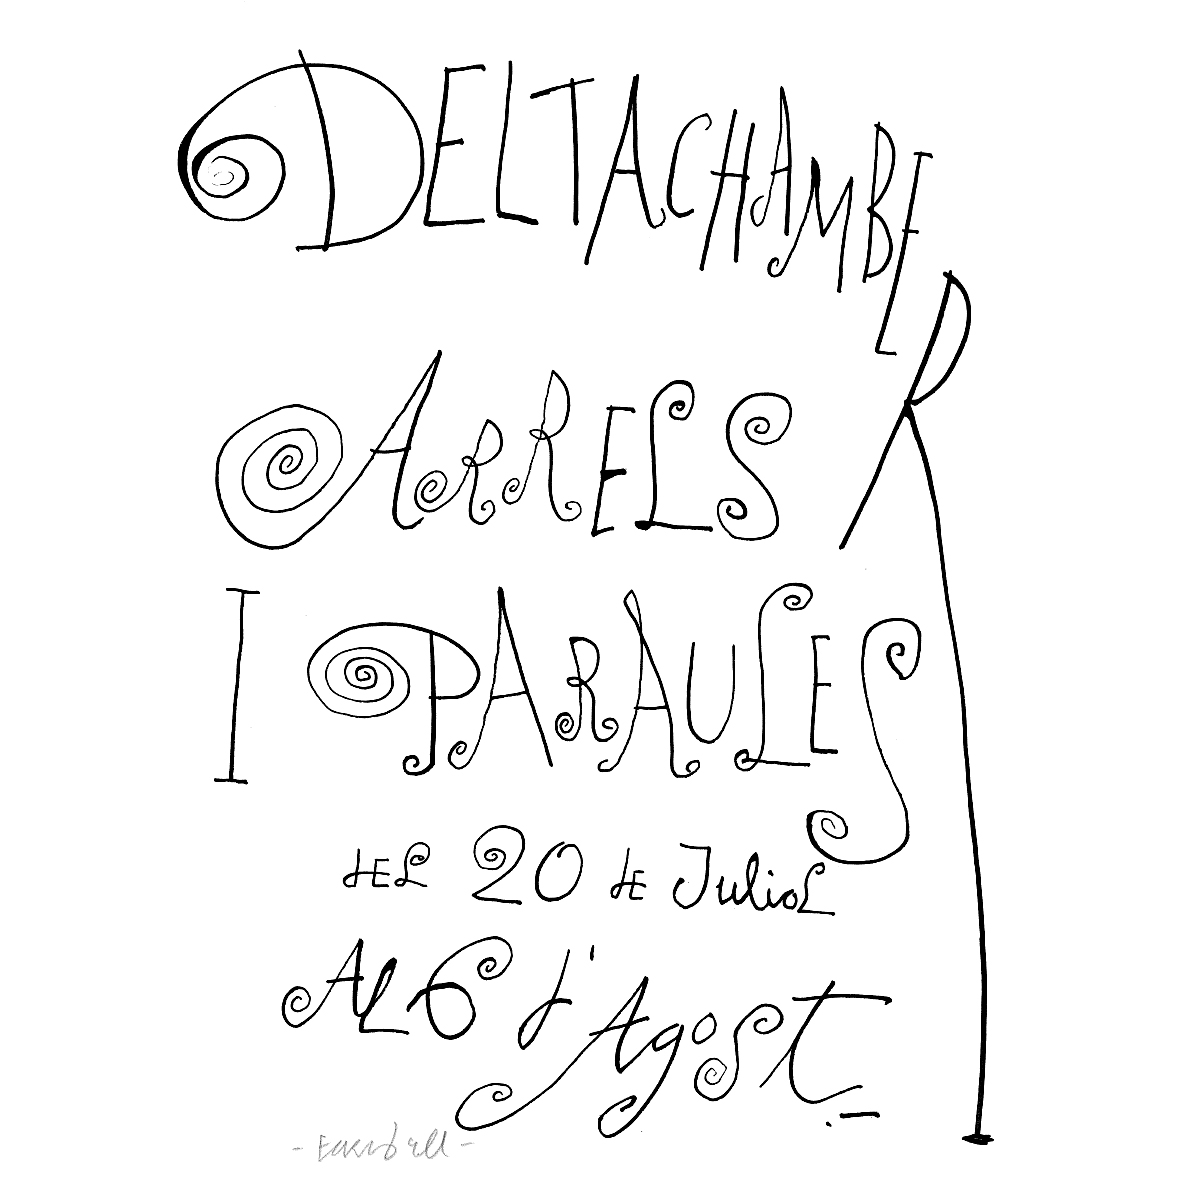 DELTACHAMBER
ARRELS
I PARAULES
DEL 20 DE JULIOL
AL 6 d'Agost.